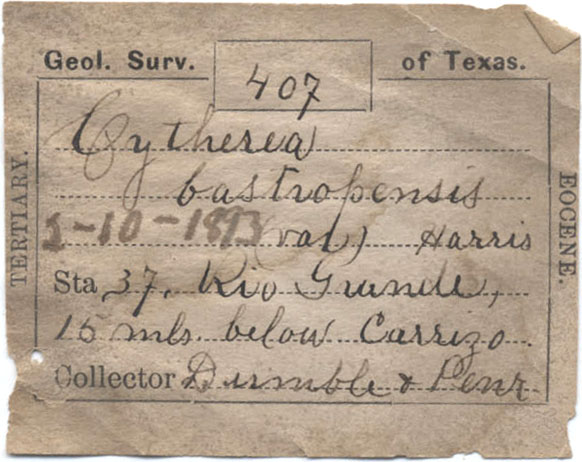 Geol. Surv. 407 of Texas.
TERTIARY.
EOCENE.
Cytherea
bastropensis
1-10-1893 (var) Harris
Sta 37. Rio Grande,
15 mls. below Carrizo.
Collector Dumble & Penr